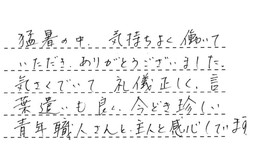 猛暑の中、気持ちよく働いて
いただき、ありがとうございました。
気さくでいて 礼儀正しく、言
葉遣いも良く、今どき珍しい
青年職人さんと、主人と感心しています